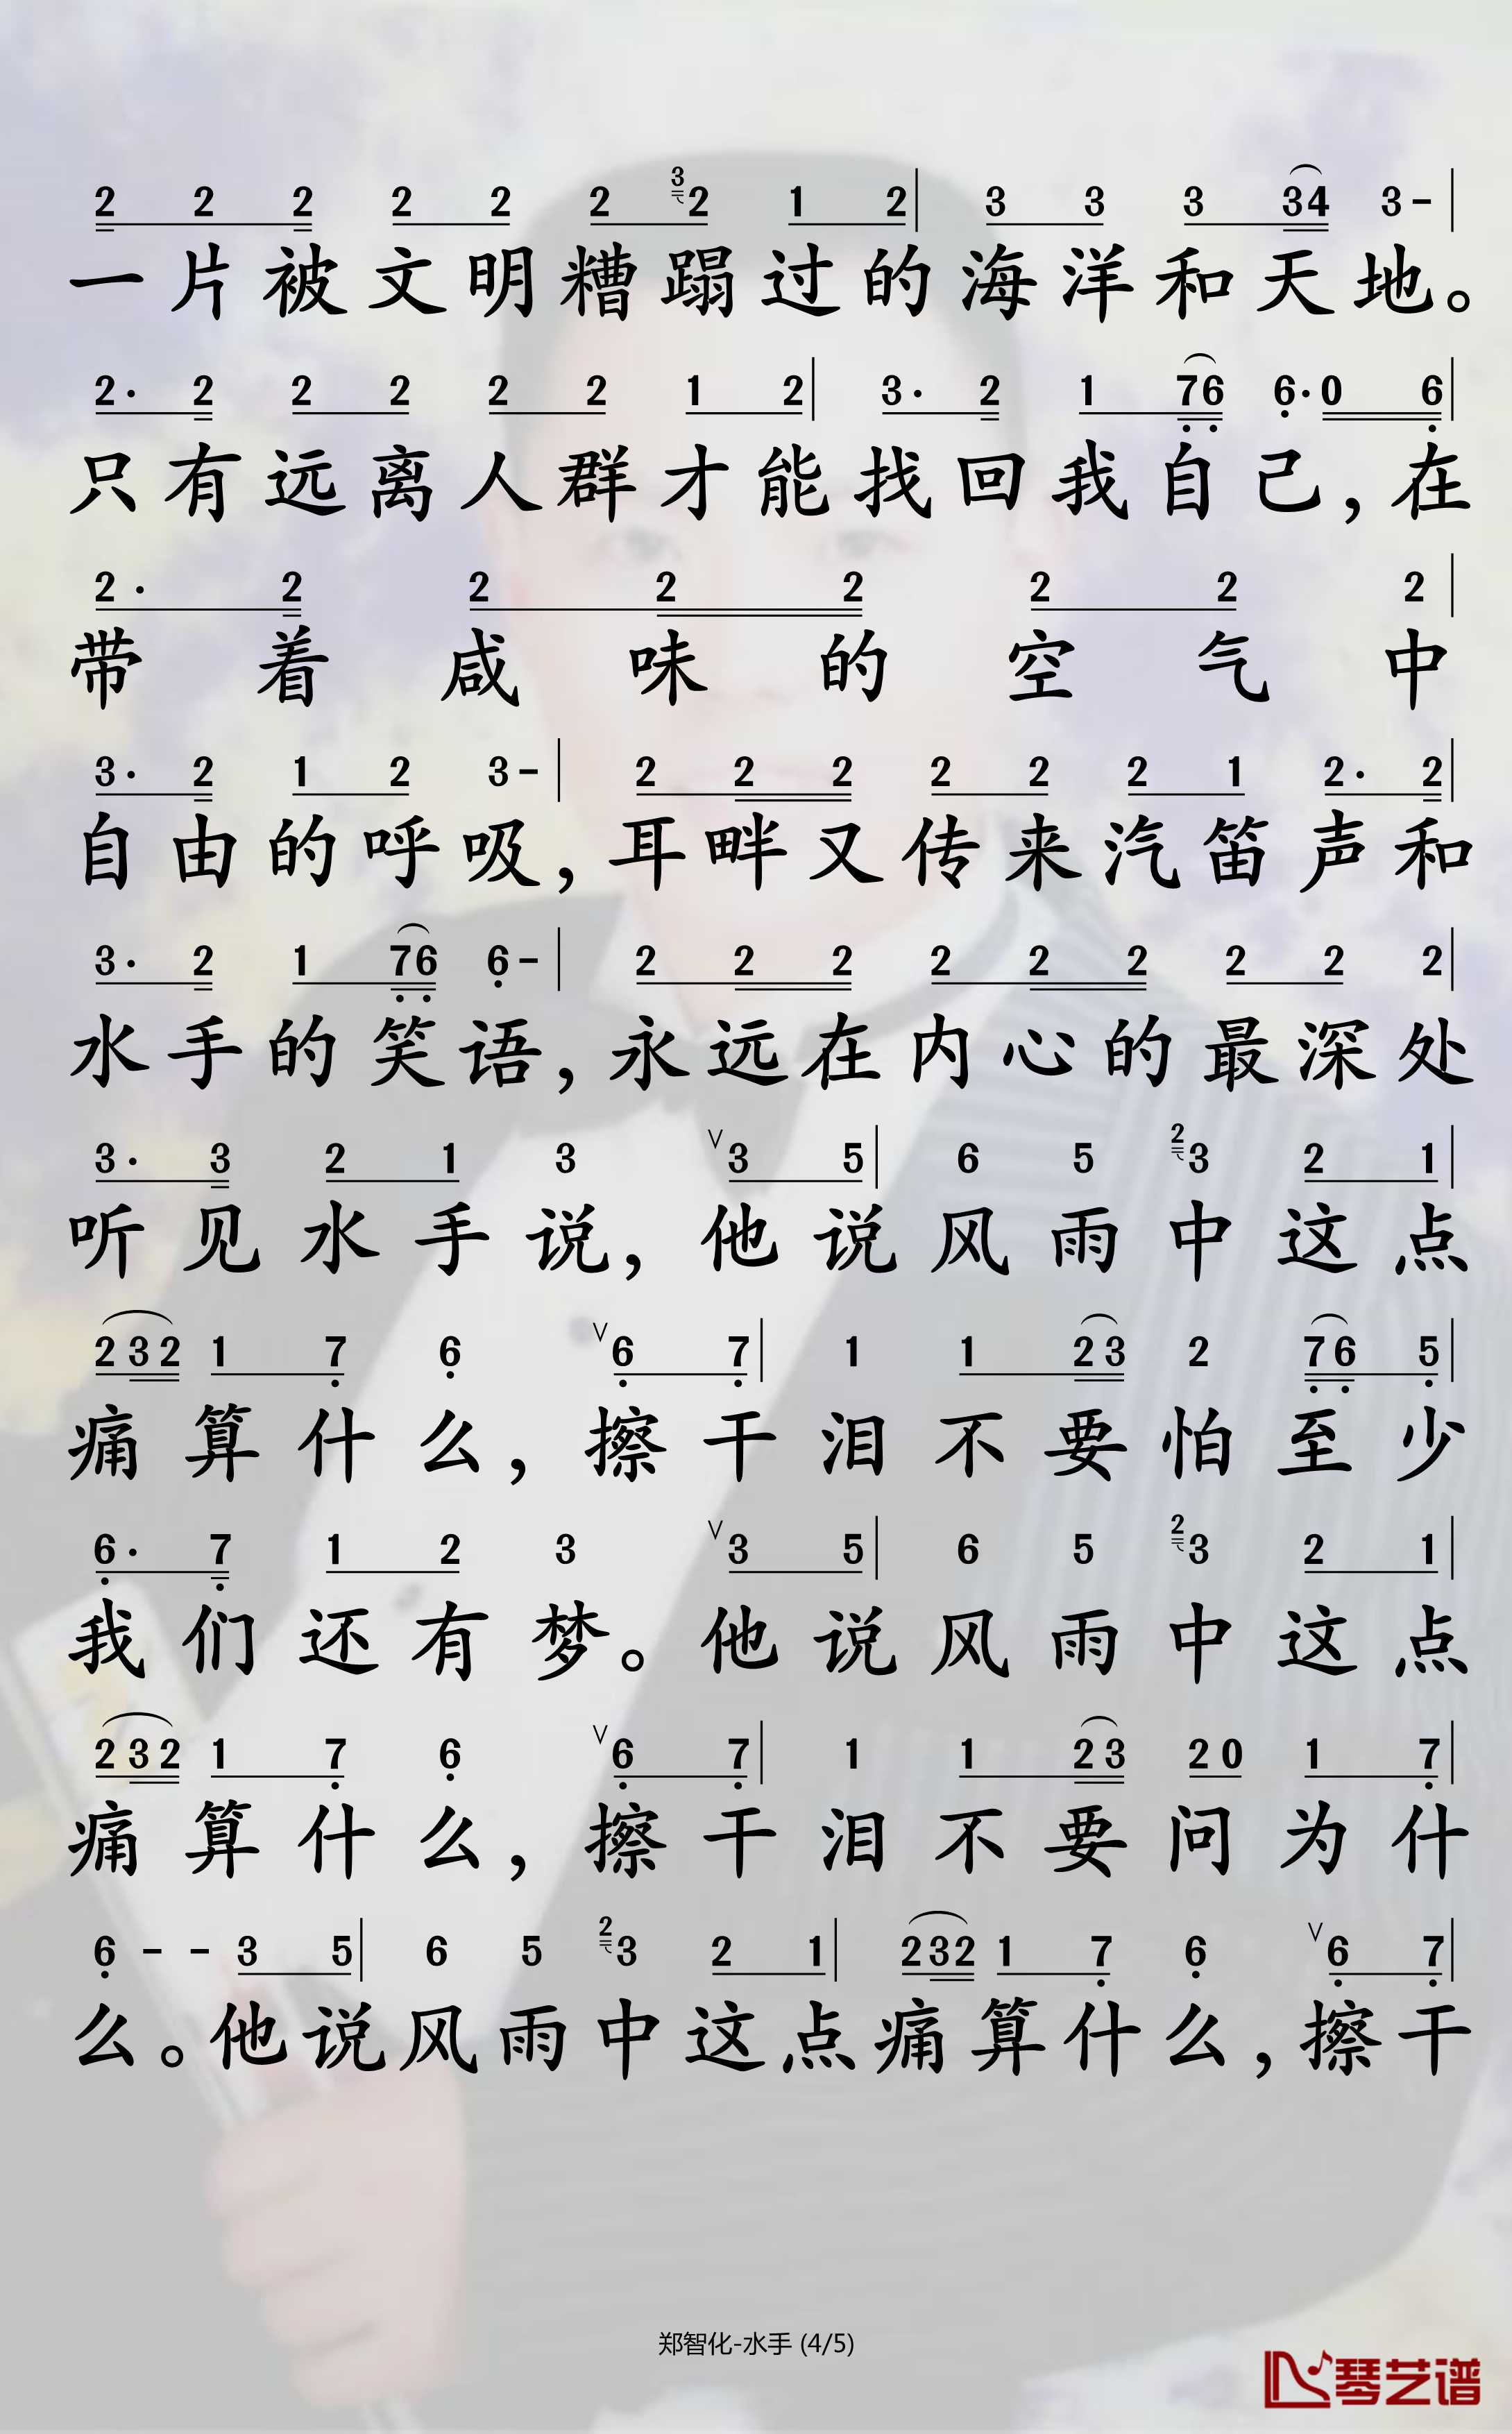 2 2 2 2 2 2 3 2 1 2 | 3 3 3 34 3 - |
一片被文明糟蹋过的海洋和天地。
2 · 2 2 2 2 2 1 2 | 3 · 2 1 76 6 · 0 6 |
只有远离人群才能找回我自己，在
2 · 2 2 2 2 2 2 2 |
带着咸味的空气中
3 · 2 1 2 3 - | 2 2 2 2 2 2 1 2 · 2 |
自由的呼吸，耳畔又传来汽笛声和
3 · 2 1 76 6 - | 2 2 2 2 2 2 2 2 2 |
水手的笑语，永远在内心的最深处
3 · 3 2 1 3 ∨ 3 5 | 6 5 2 3 2 1 |
听见水手说，他说风雨中这点
2 3 2 1 7 6 ∨ 6 7 | 1 1 2 3 2 7 6 5 |
痛算什么，擦干泪不要怕至少
6 · 7 1 2 3 ∨ 3 5 | 6 5 2 3 2 1 |
我们还有梦。他说风雨中这点
2 3 2 1 7 6 ∨ 6 7 | 1 1 2 3 2 0 1 7 |
痛算什么，擦干泪不要问为什
6 - - 3 5 | 6 5 2 3 2 1 | 232 1 7 6 ∨ 6 7 |
么。他说风雨中这点痛算什么，擦干
郑智化-水手 (4/5)
琴艺谱